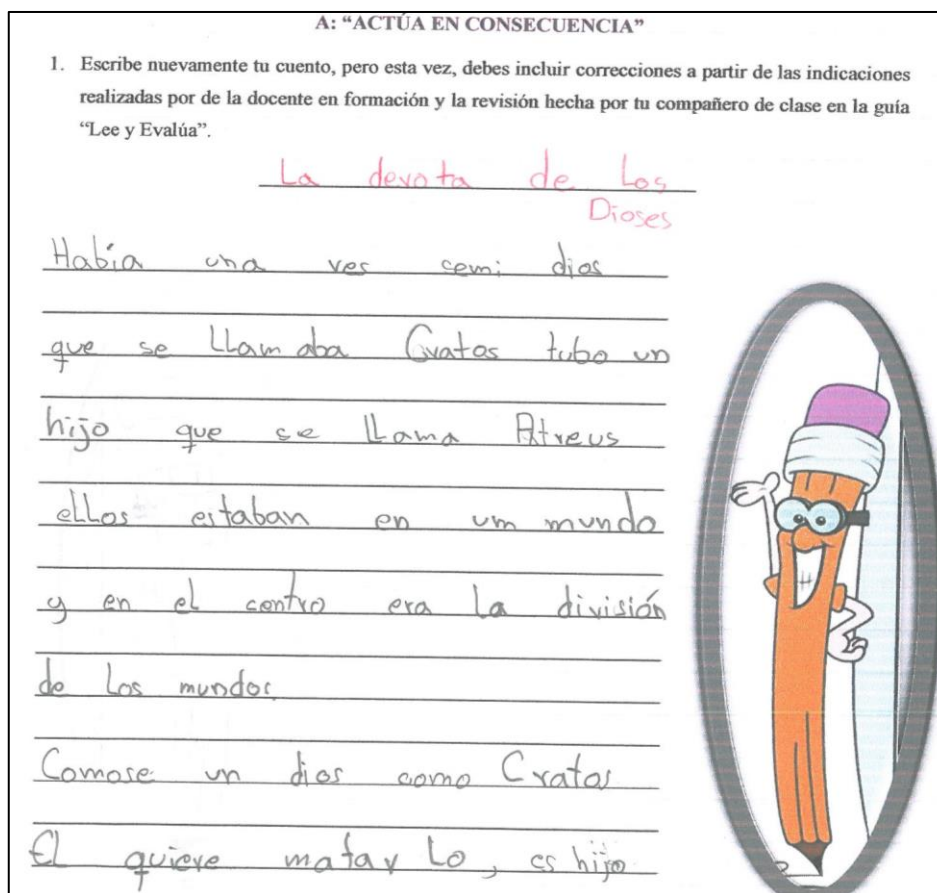 A: “ACTÚA EN CONSECUENCIA”
1. Escribe nuevamente tu cuento, pero esta vez, debes incluir correcciones a partir de las indicaciones
realizadas por de la docente en formación y la revisión hecha por tu compañero de clase en la guía
“Lee y Evalúa”.
La devota de Los
Dioses
Había una ves semi dios
que se LLamaba Cratos tubo un
hijo que se LLama Atreus
eLLos estaban en um mundo
y en eL centro era La división
de Los mundos
Comose un dios como Cratos
El quiere matar Lo, es hijo